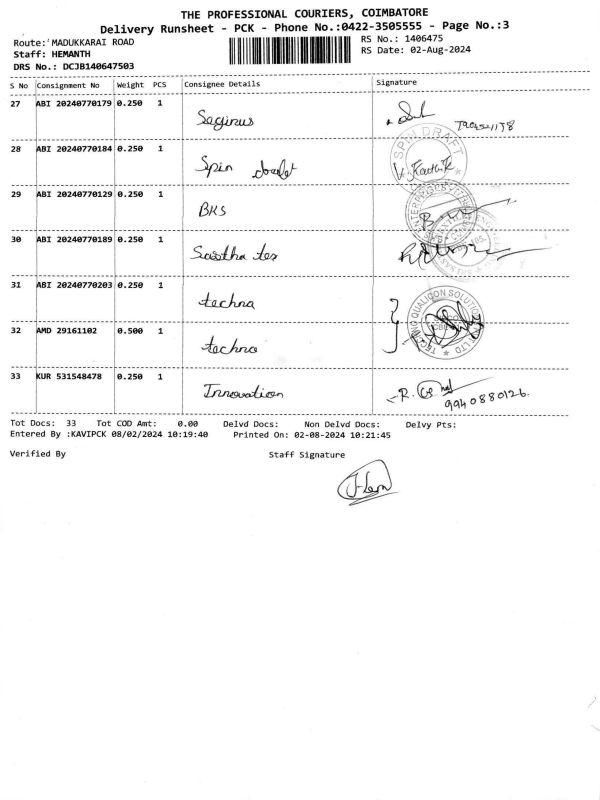 THE PROFESSIONAL COURIERS, COIMBATORE
Delivery Runsheet - PCK - Phone No.:0422-3505555 - Page No.:3
Route: MADUKKARAI ROAD
RS No.: 1406475
Staff: HEMANTH
RS Date: 02-Aug-2024
DRS No.: DCJB140647503
S No Consignment No Weight PCS Consignee Details Signature
27 ABI 20240770179 0.250 1 Saginus
28 ABI 20240770184 0.250 1 Spin
SPIN DRAFT
29 ABI 20240770129 0.250 1 BKS
30 ABI 20240770189 0.250 1 Sastha tex
31 ABI 20240770203 0.250 1 techna
TECHNO QUALICON SOLUTIONS LTD
32 AMD 29161102 0.500 1 techno
33 KUR 531548478 0.250 1 Innovation R.
9940880126.
Tot Docs: 33 Tot COD Amt: 0.00 Delvd Docs: Non Delvd Docs: Delvy Pts:
Entered By :KAVIPCK 08/02/2024 10:19:40 Printed On: 02-08-2024 10:21:45
Verified By Staff Signature